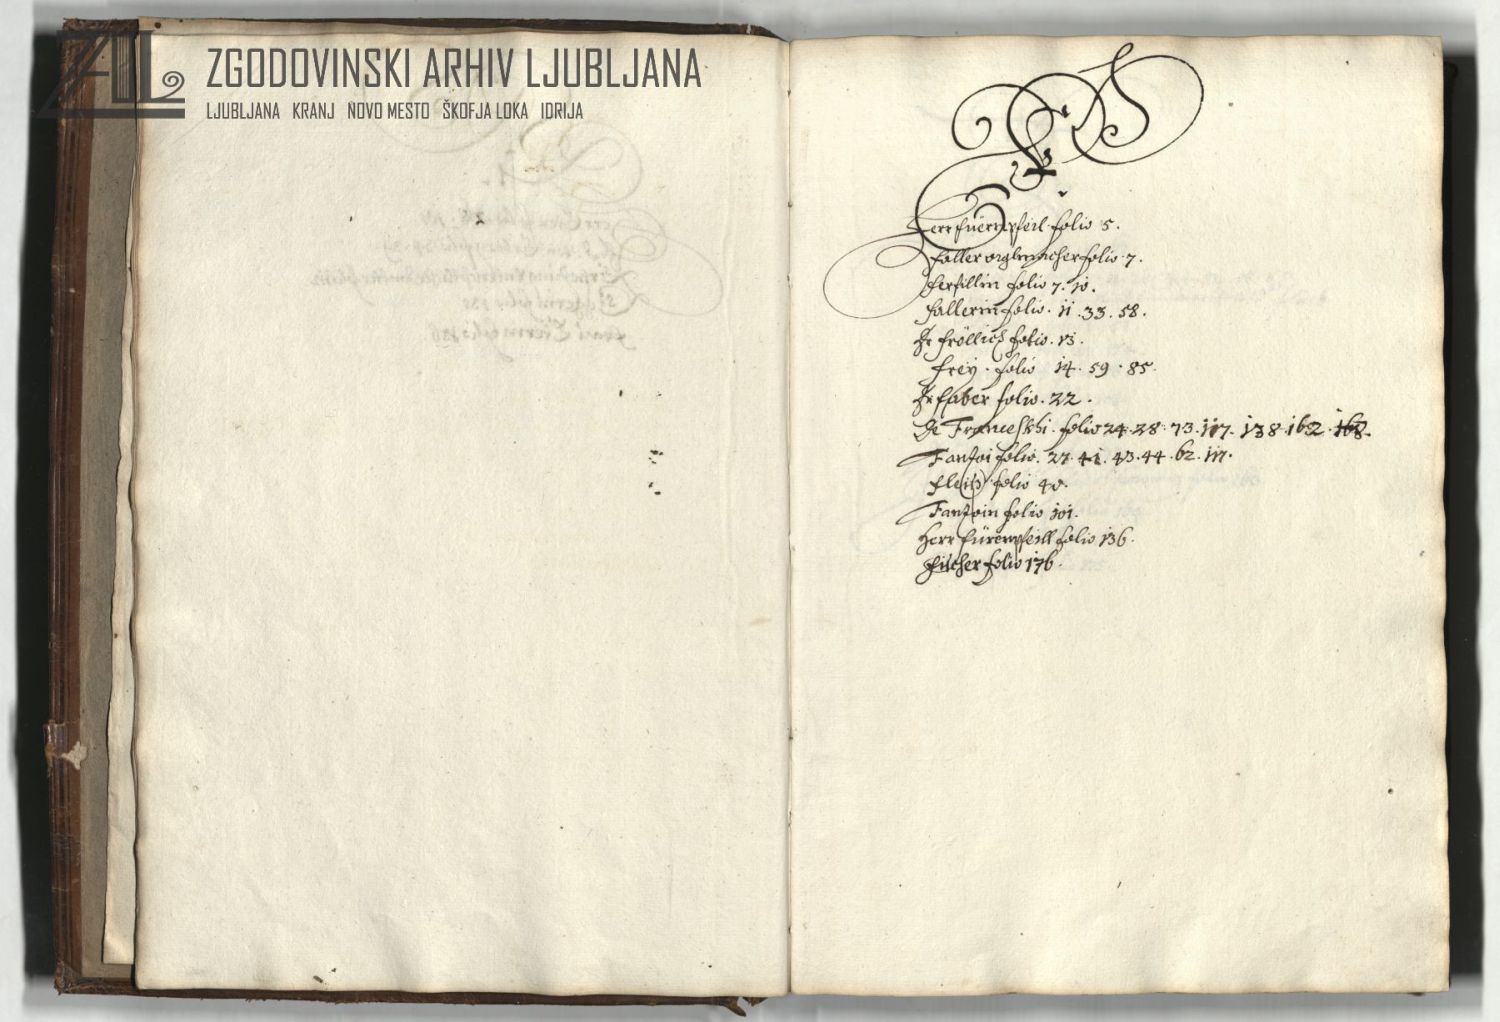 ZGODOVINSKI ARHIV LJUBLJANA
LJUBLJANA KRANJ NOVO MESTO ŠKOFJA LOKA IDRIJA
F
Herr füernpfeil folio 5.
faller orglmacher folio 7.
ferfillin folio 7. 10.
fallerin folio. 11. 33. 58.
Hr fröllich folio. 13.
frey. folio 14. 59. 85.
Hr faber folio. 22.
Hr Franceskhi. folio 24. 28. 73. 117. 138. 162. 168.
Fantoi folio. 27. 41. 43. 44. 62. 117.
fleiß folio 40.
Fantoin folio 101.
Herr fürempfeill folio 136.
fischer folio 176.